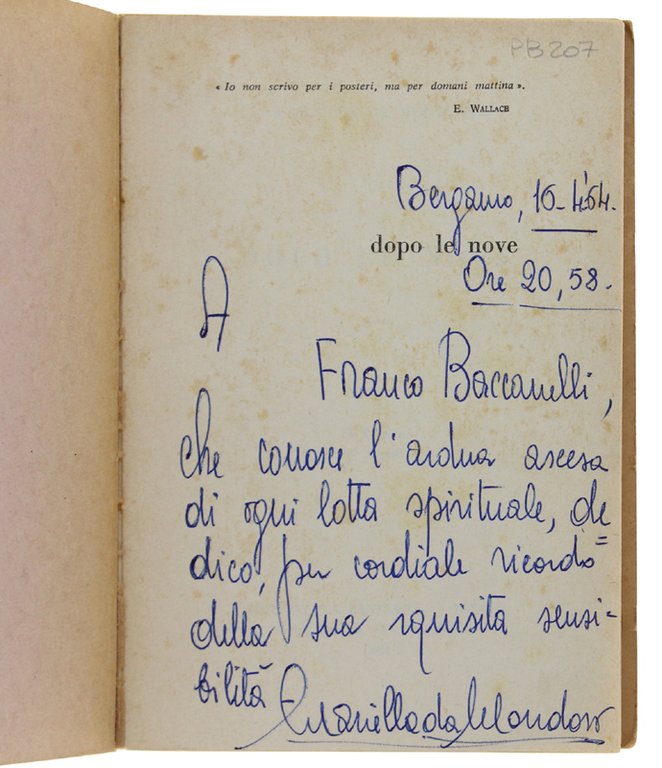 PB207
« Io non scrivo per i posteri, ma per domani mattina ».
E. WALLACE
Bergamo, 16-4-54.
dopo le nove
Ore 20,58.
A
Franco Baccanelli,
che conosce l'ardua ascesa
di ogni lotta spirituale, de
dico, per cordiale ricordo =
della sua squisita sensi-
bilità